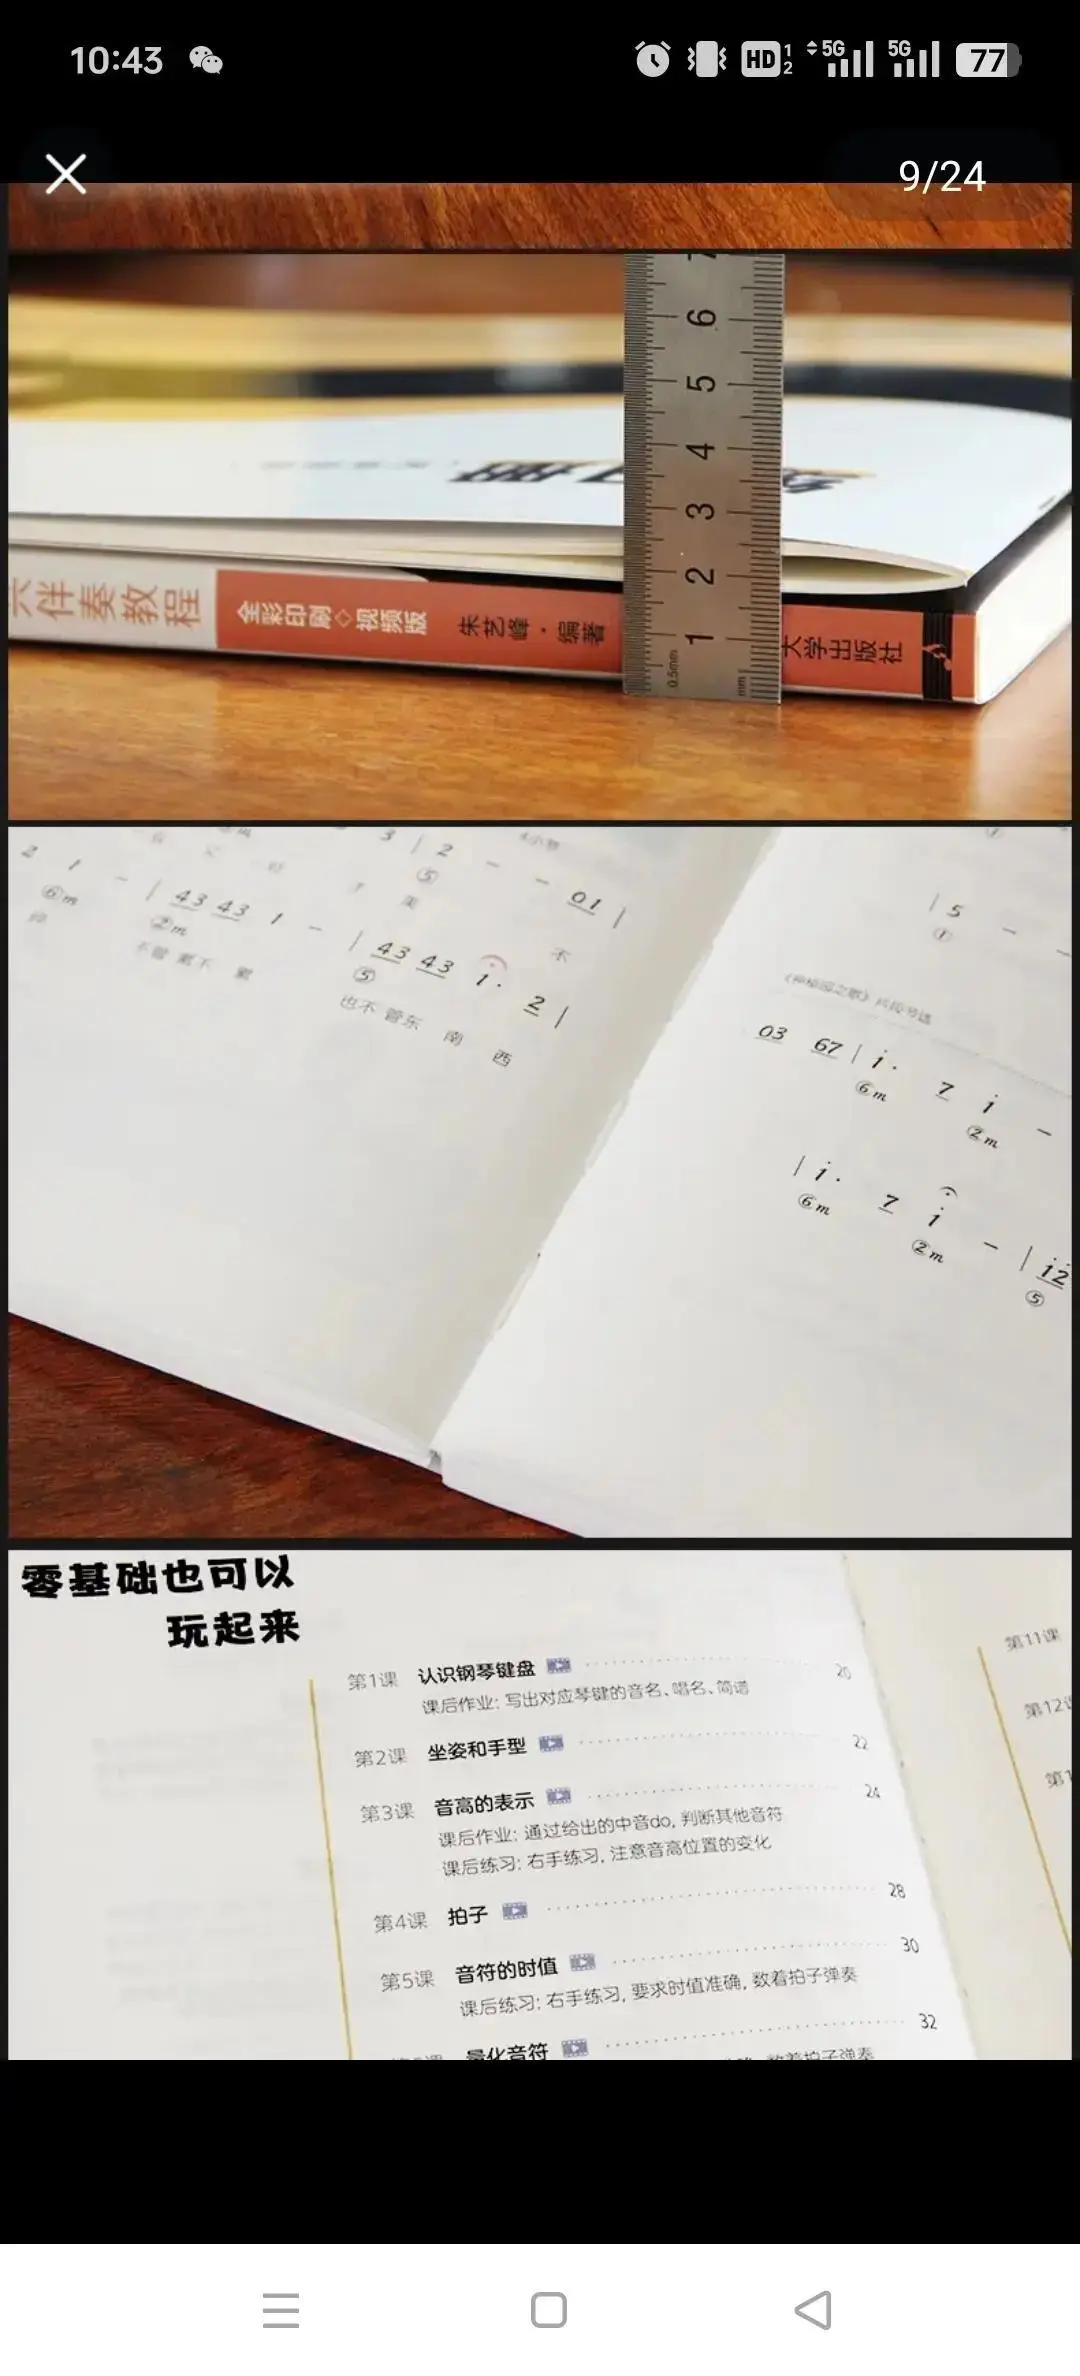 10:43
HD 1 2 5G 5G 77
9/24
7
6
5
4
3
2
1
0.5mm
mm
伴奏教程 全彩印刷◇视频版 朱艺峰·编著 大学出版社
3 | 2 - - 01 |
⑤
2 1 - | 43 43 1 - | 43 43 1· 2 |
⑥m ②m ⑤
不管 累不 累 也不 管东 南 西
不
| 5 - -
①
03 67 | 1· 7 1 -
⑥m ②m
| 1· 7 1 - | 12
⑥m ②m ⑤
零基础也可以
玩起来
第1课 认识钢琴键盘 20
课后作业: 写出对应琴键的音名、唱名、简谱
第2课 坐姿和手型 22
第3课 音高的表示 24
课后作业: 通过给出的中音do, 判断其他音符
课后练习: 右手练习, 注意音高位置的变化
第4课 拍子 28
第5课 音符的时值 30
课后练习: 右手练习, 要求时值准确, 数着拍子弹奏
量化音符 32
数着拍子弹奏
第11课
第12课